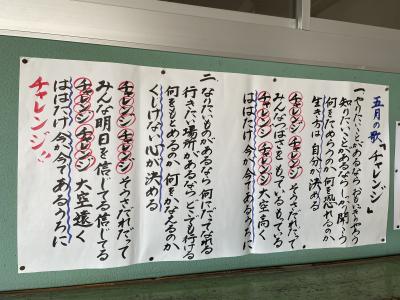 五月の歌「チャレンジ」
一、やりたいことがあるなら おもいきりやろう
知りたいことがあるなら しっかり聞こう
何をためらうのか 何を恐れるのか
生き方は 自分が決める
チャレンジ チャレンジ そうさだれだって
みんなつばさをもっている もっている
チャレンジ チャレンジ 大空高く
はばたけ 今が今であるうちに
二、なりたいものがあるなら 何にだってなれる
行きたい場所があるなら どこでも行ける
何をもとめるのか 何をかなえるのか
くじけない心が決める
チャレンジ チャレンジ そうさだれだって
みんな明日を信じてる 信じてる
チャレンジ チャレンジ 大空遠く
はばたけ 今が今であるうちに
チャレンジ!!